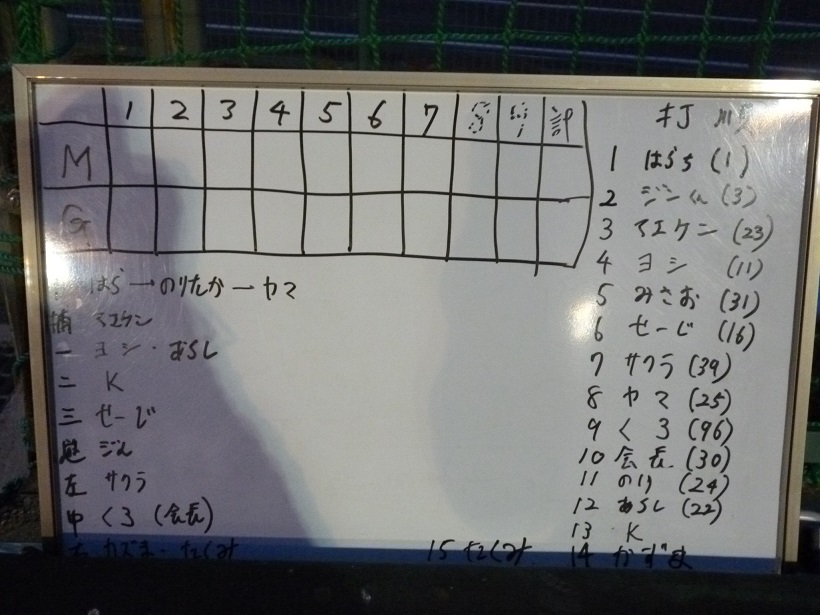 1 2 3 4 5 6 7 8 9 計
M
G
はら→のりたか→ヤマ
捕 マエケン
一 ヨシ・あらし
二 K
三 せーじ
遊 ジん
左 サクラ
中 くろ (会長)
右 カズま-たくみ
打順
1 はらち (1)
2 ジンくん (3)
3 マエケン (23)
4 ヨシ (11)
5 みさお (31)
6 せーじ (16)
7 サクラ (39)
8 ヤマ (25)
9 くろ (96)
10 会長 (30)
11 のり (24)
12 あらし (22)
13 K
14 かずま
15 たくみ